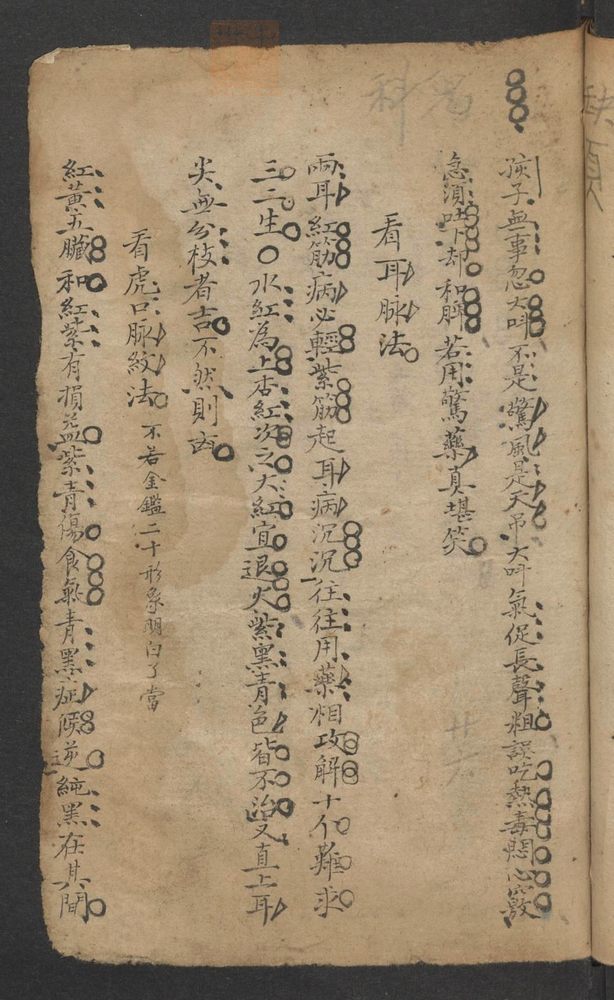 孩子無事忽大叫不是驚風是天吊大叫氣促長聲粗誤吃熱毒悶心竅
急須吐下却和脾若用驚藥真堪笑
看耳脉法
兩耳紅筋病必輕紫筋起耳病沉沉往往用藥相攻解十个難求
三二生〇水紅為上杏紅次之大紅宜退火紫黑青色皆不治又直上耳
尖無分枝者吉不然則凶
看虎口脉紋法 不若金鑑二十形象明白了當
紅黃五臟和紅紫有損益紫青傷食氣青黑症候逆純黑在其間
科